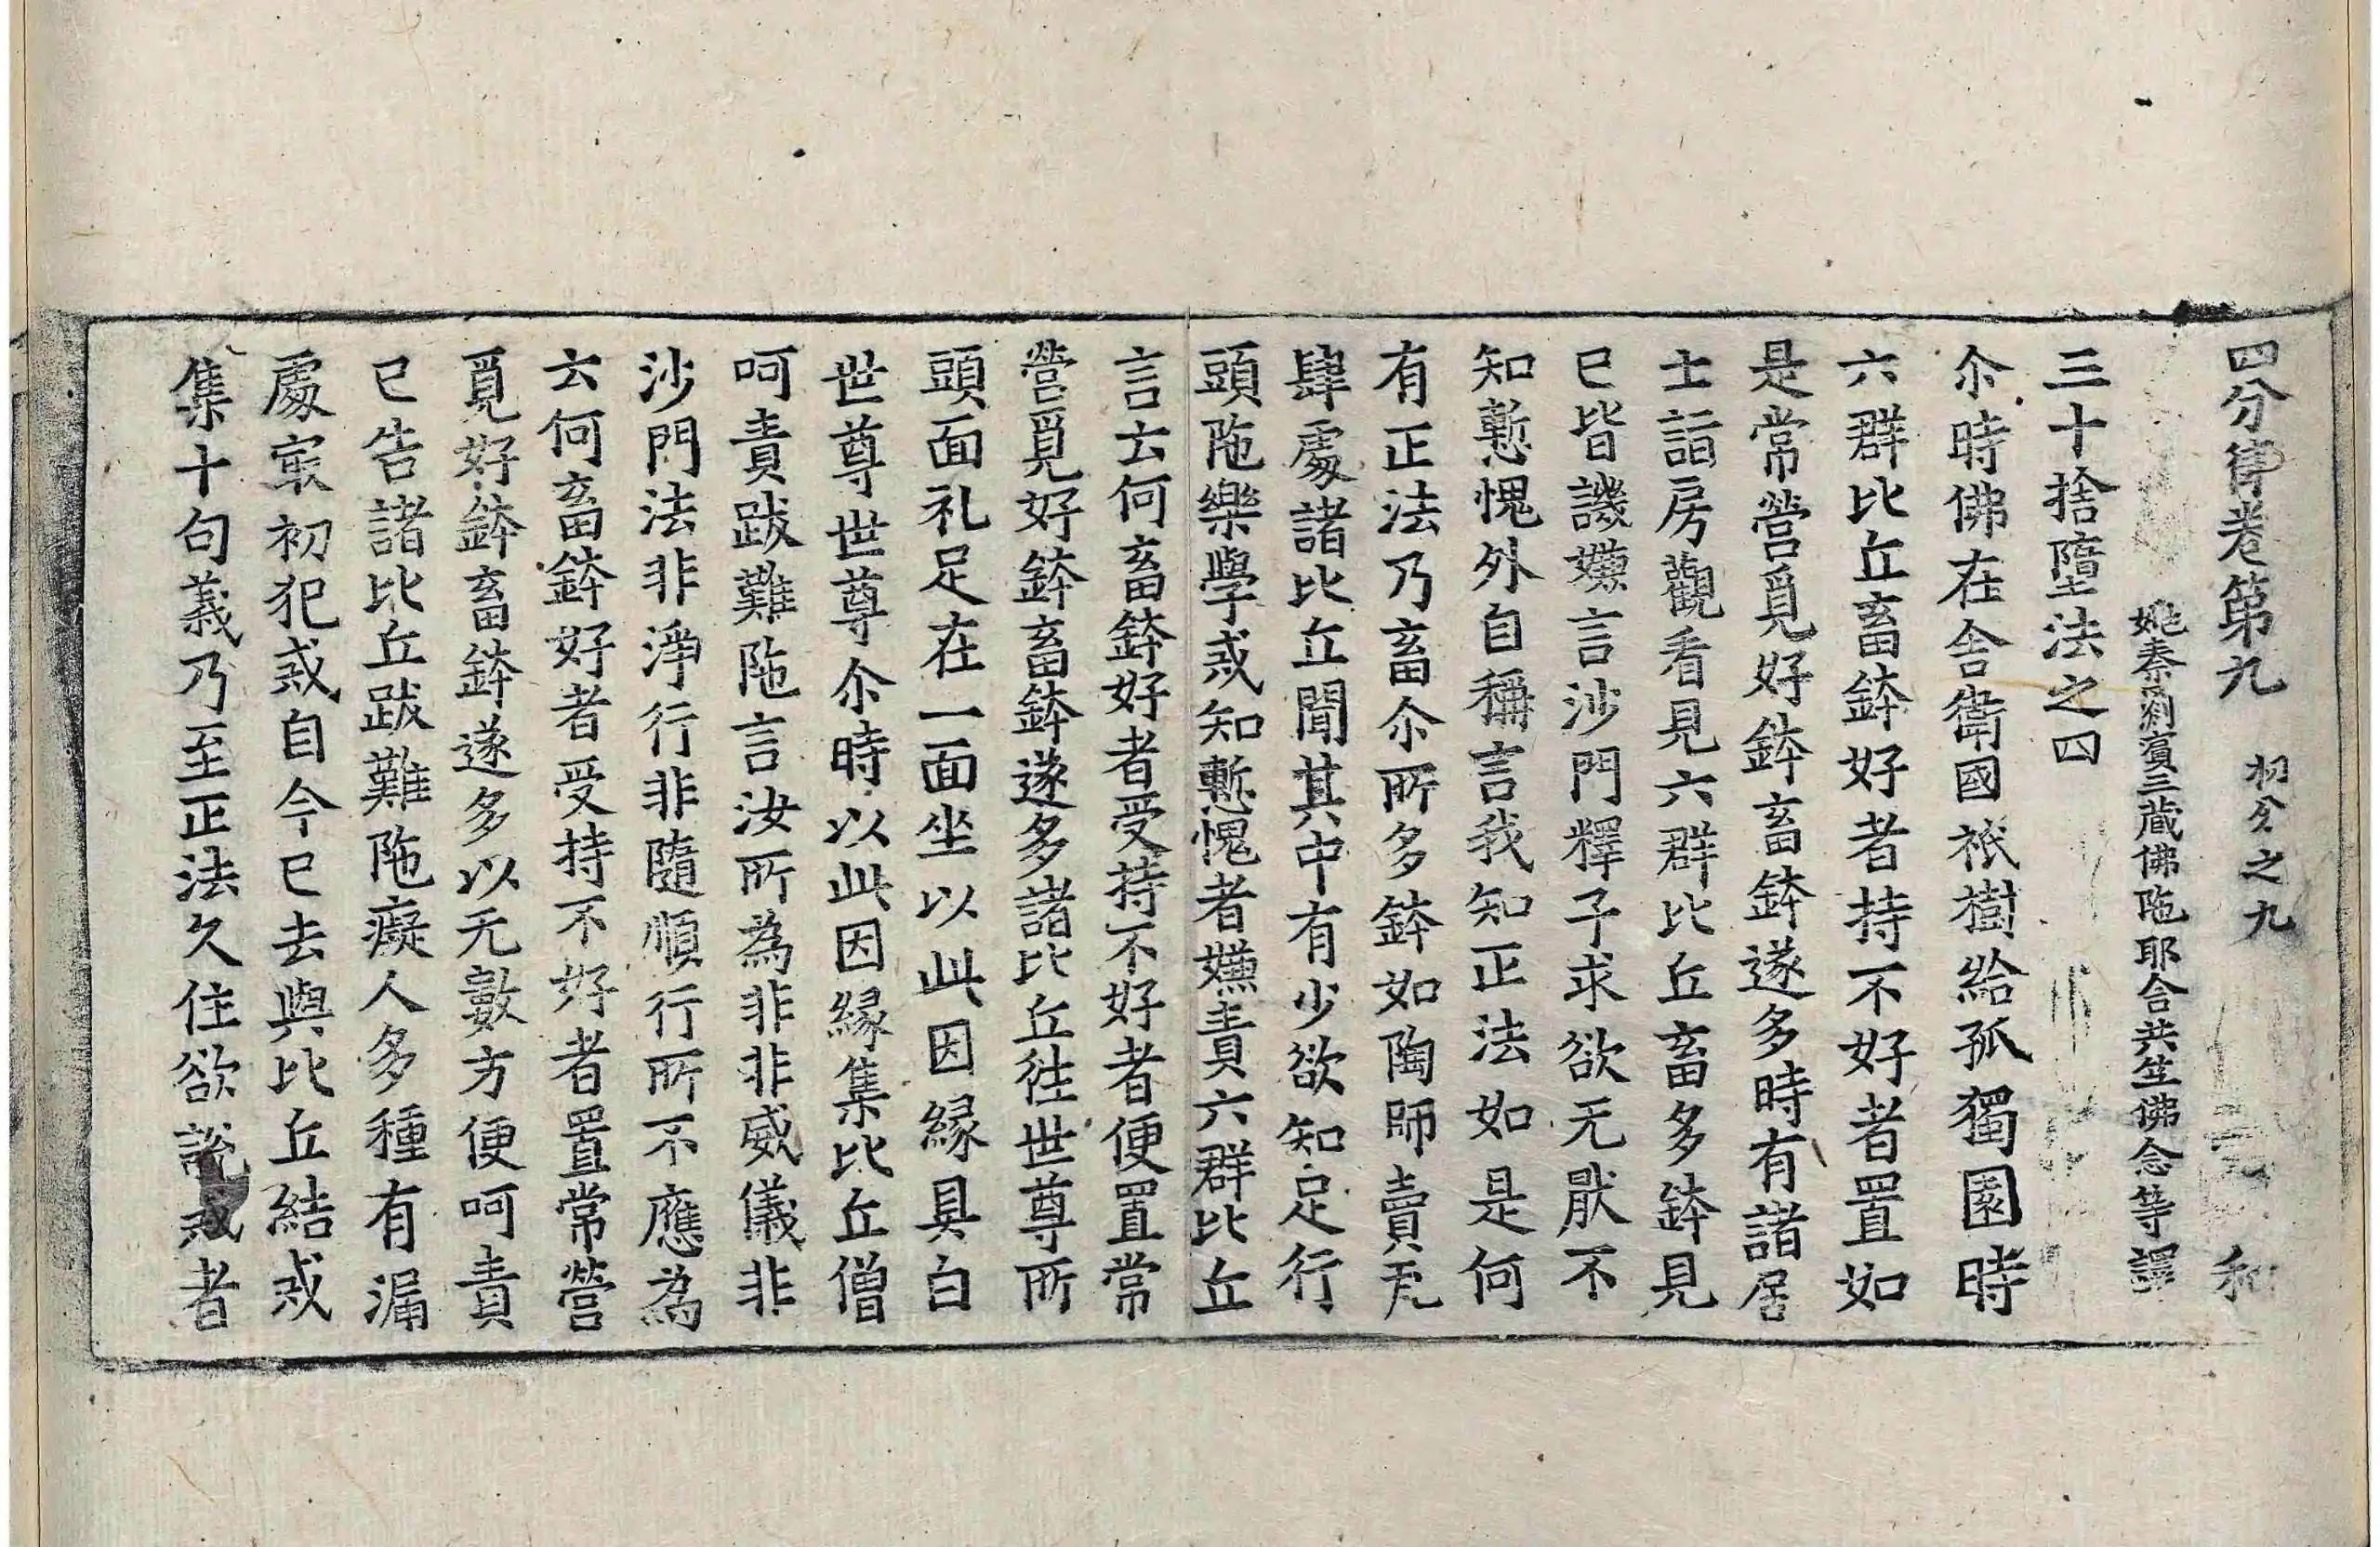 四分律卷第九 初分之九 和
姚秦罽賓三藏佛陁耶舍共竺佛念等譯
三十捨墮法之四
尒時佛在舍衛國祇樹給孤獨園時
六群比丘畜鉢好者持不好者置如
是常營覓好鉢畜鉢遂多時有諸居
士詣房觀看見六群比丘畜多鉢見
已皆譏嫌言沙門釋子求欲无厭不
知慙愧外自稱言我知正法如是何
有正法乃畜尒所多鉢如陶師賣瓦
肆處諸比丘聞其中有少欲知足行
頭陁樂學戒知慙愧者嫌責六群比丘
言云何畜鉢好者受持不好者便置常
營覓好鉢畜鉢遂多諸比丘往世尊所
頭面礼足在一面坐以此因緣具白
世尊世尊尒時以此因緣集比丘僧
呵責跋難陁言汝所為非非威儀非
沙門法非淨行非隨順行所不應為
云何畜鉢好者受持不好者置常營
覓好鉢畜鉢遂多以无數方便呵責
已告諸比丘跋難陁癡人多種有漏
處冣初犯戒自今已去與比丘結戒
集十句義乃至正法久住欲說戒者